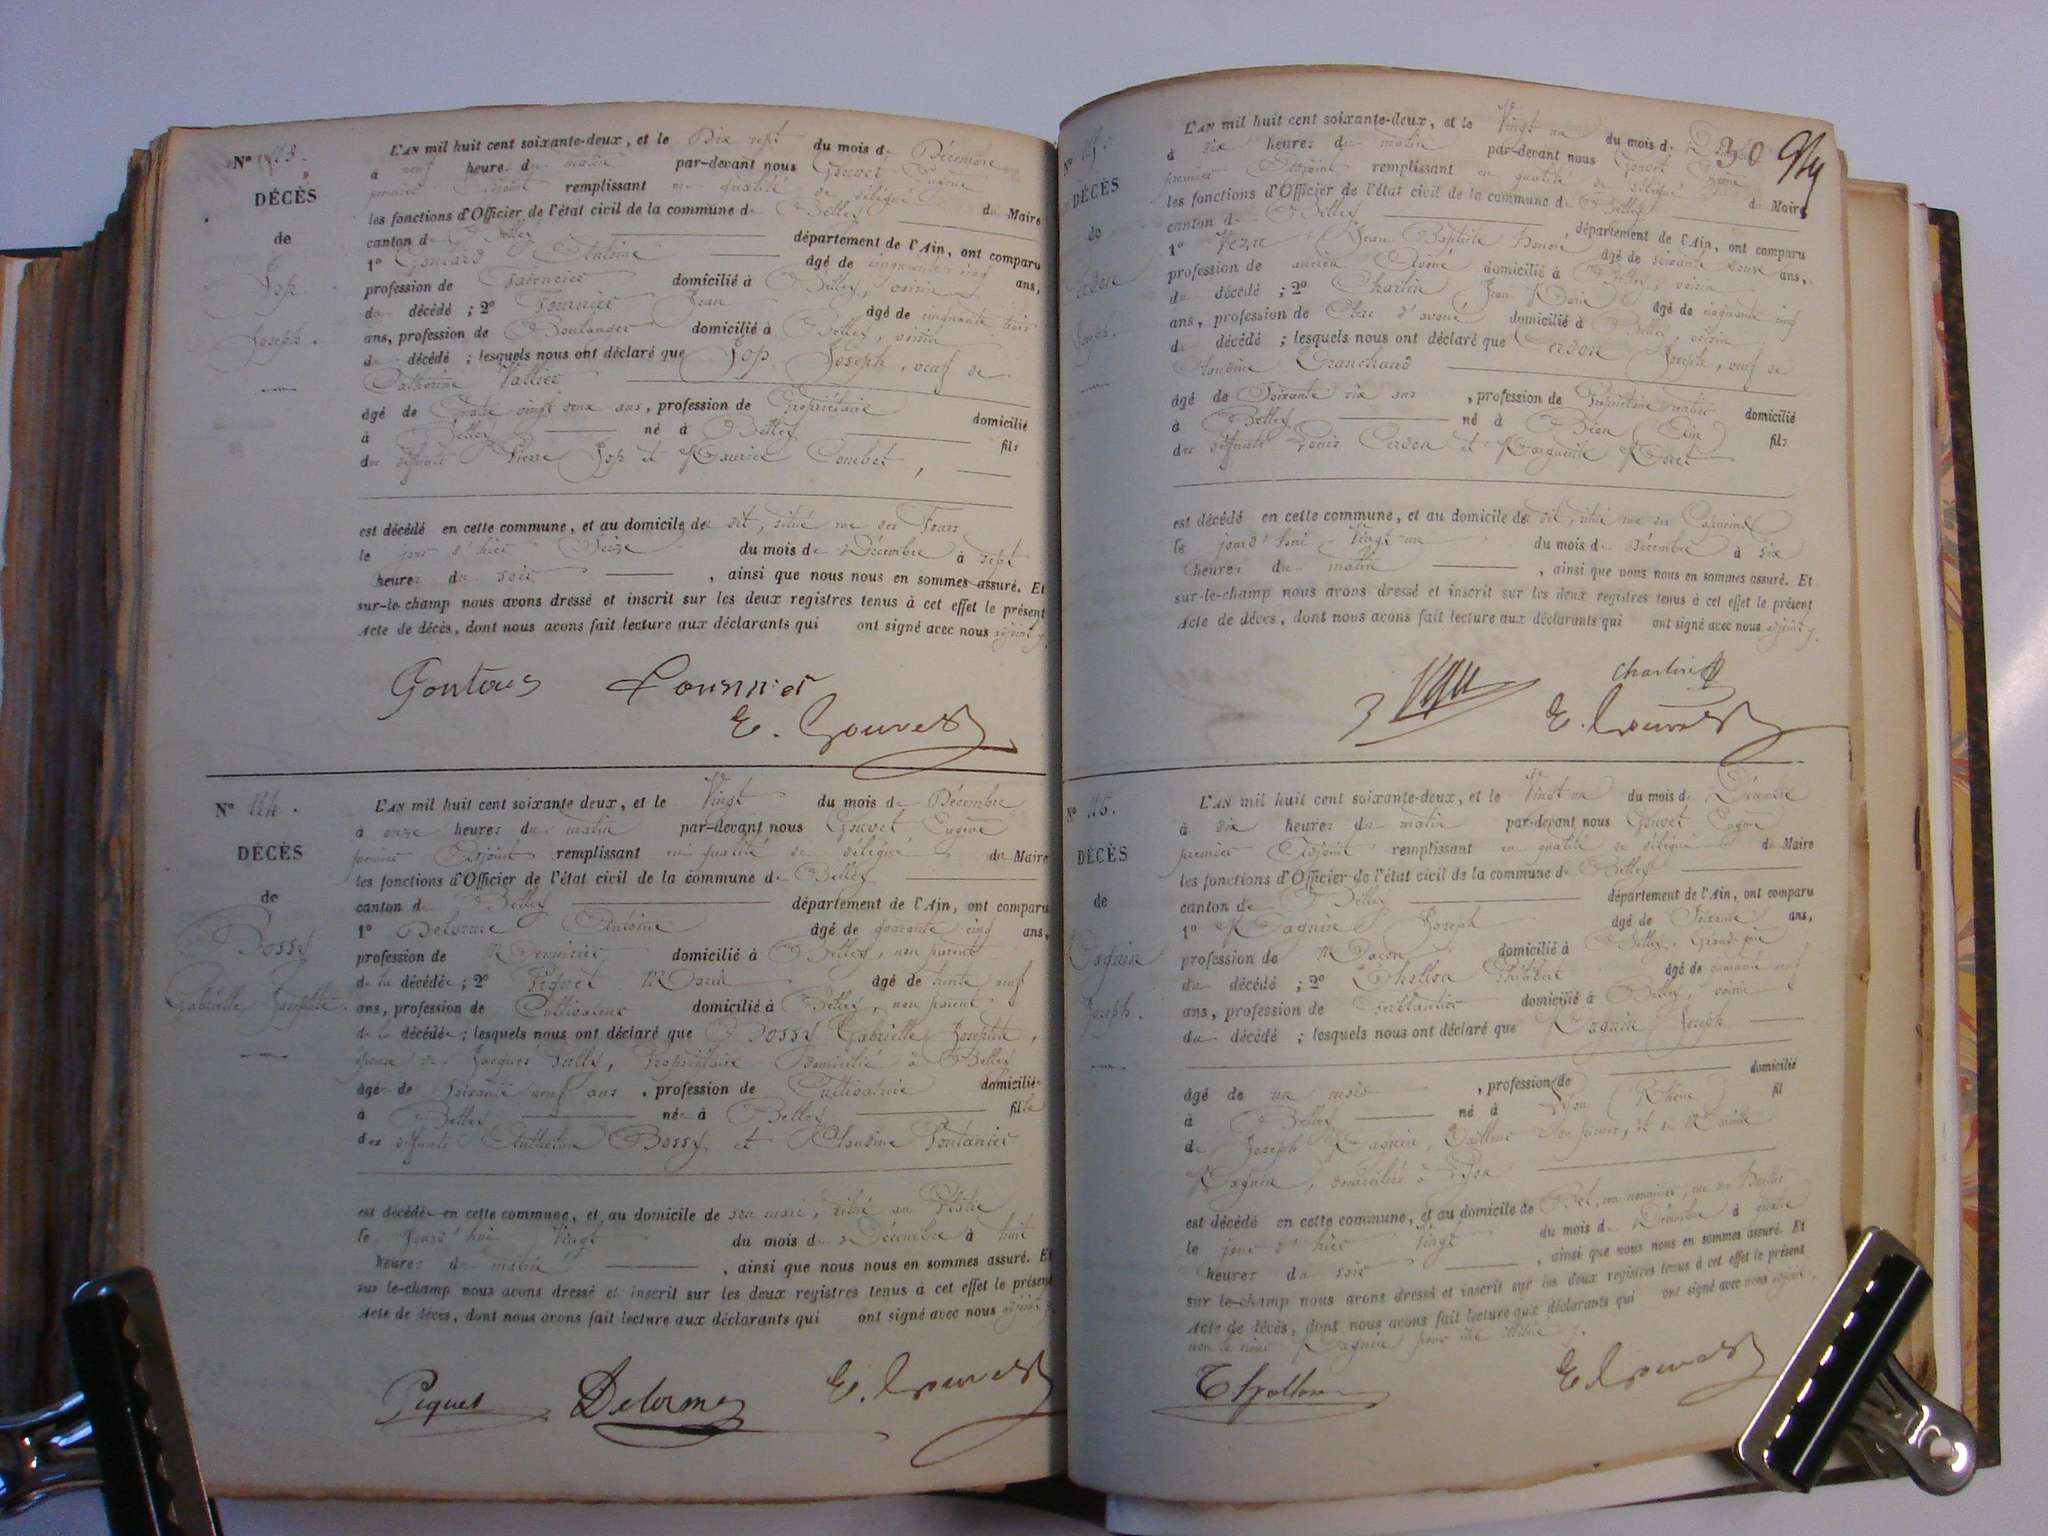 DÉCÈS
de
Jop
Joseph.
L'AN mil huit cent soixante-deux, et le Dix sept du mois de Décembre
à neuf heures du matin par-devant nous Gouvet Eugène
premier Adjoint remplissant en qualité de délégué du Maire
les fonctions d'Officier de l'état civil de la commune de Belley
canton de Belley département de l'Ain, ont comparu
1° Antoine âgé de cinquante cinq ans,
profession de domicilié à Belley, voisin
du décédé ; 2° Fournier Jean âgé de cinquante trois
ans, profession de Boulanger domicilié à Belley, voisin
du décédé ; lesquels nous ont déclaré que Jop Joseph, veuf de
Catherine Vallier
âgé de quatre vingt deux ans, profession de Propriétaire domicilié
à Belley né à Belley fils
des défunts Pierre Jop et Combet,
est décédé en cette commune, et au domicile du dit, situé rue des Fours
le jour d'hier Seize du mois de Décembre à sept
heures du soir, ainsi que nous nous en sommes assuré. Et
sur-le-champ nous avons dressé et inscrit sur les deux registres tenus à cet effet le présent
Acte de décès, dont nous avons fait lecture aux déclarants qui ont signé avec nous adjoint
E. Gouvet
N° 114.
DÉCÈS
de
Bossy
Gabrielle Josephte
L'AN mil huit cent soixante deux, et le Vingt du mois de Décembre
à onze heures du matin par-devant nous Gouvet Eugène
premier Adjoint remplissant en qualité de délégué du Maire
les fonctions d'Officier de l'état civil de la commune de Belley
canton de Belley département de l'Ain, ont comparu
1° Delorme Antoine âgé de quarante cinq ans,
profession de Menuisier domicilié à Belley, non parent
de la décédée ; 2° Piquet Marin âgé de trente neuf
ans, profession de Cultivateur domicilié à Belley, non parent
de la décédée ; lesquels nous ont déclaré que Bossy Gabrielle Josephte,
épouse de Jacques Tully, Propriétaire domicilié à Belley
âgée de soixante neuf ans, profession de Cultivatrice domiciliée
à Belley née à Belley fille
des défunts Anthelme Bossy et Claudine Fontanier
est décédée en cette commune, et au domicile de son mari, situé au
le jourd'hui Vingt du mois de Décembre à huit
heures du matin, ainsi que nous nous en sommes assuré. Et
sur le-champ nous avons dressé et inscrit sur les deux registres tenus à cet effet le présent
Acte de décès, dont nous avons fait lecture aux déclarants qui ont signé avec nous adjoint
Piquet Delorme E. Gouvet
30
DÉCÈS
de
Cerdon
Joseph.
L'AN mil huit cent soixante-deux, et le Vingt un du mois de
à dix heures du matin par-devant nous Gouvet Eugène
premier Adjoint remplissant en qualité de délégué du Maire
les fonctions d'Officier de l'état civil de la commune de Belley
canton de Belley, département de l'Ain, ont comparu
1° Jean Baptiste Honoré âgé de soixante douze ans,
profession de ancien Avoué domicilié à Belley, voisin
du décédé ; 2° Charlin Jean Marie âgé de cinquante cinq
ans, profession de Clerc d'avoué domicilié à Belley voisin
du décédé ; lesquels nous ont déclaré que Cerdon Joseph, veuf de
Claudine Granchand
âgé de Soixante dix ans, profession de Propriétaire domicilié
à Belley né à Béon (Ain) fils
des défunts Louis Cerdon et Marguerite
est décédé en cette commune, et au domicile du dit, situé rue des Capucins
le jourd'hui Vingt un du mois de Décembre à Six
heures du matin, ainsi que nous nous en sommes assuré. Et
sur-le-champ nous avons dressé et inscrit sur les deux registres tenus à cet effet le présent
Acte de décès, dont nous avons fait lecture aux déclarants qui ont signé avec nous adjoint
Charlin
E. Gouvet
N° 116.
DÉCÈS
de
Joseph.
L'AN mil huit cent soixante-deux, et le Vingt un du mois de Décembre
à dix heures du matin par-devant nous Gouvet Eugène
premier Adjoint remplissant en qualité de délégué du Maire
les fonctions d'Officier de l'état civil de la commune de Belley
canton de Belley département de l'Ain, ont comparu
1° Magnin Joseph âgé de Soixante ans,
profession de Maçon domicilié à Belley, Grand-père
du décédé ; 2° Thollon âgé de quarante neuf
ans, profession de ferblantier domicilié à Belley, voisin
du décédé ; lesquels nous ont déclaré que Magnin Joseph
âgé de un mois, profession de domicilié
à Belley né à Lyon (Rhône) fil
de Joseph Magnin, Tailleur de pierres, et de
Magnin, domiciliés à Lyon
est décédé en cette commune, et au domicile de
le jour d'hier Vingt du mois de Décembre à quatre
heures du soir, ainsi que nous nous en sommes assuré. Et
sur le-champ nous avons dressé et inscrit sur les deux registres tenus à cet effet le présent
Acte de décès, dont nous avons fait lecture aux déclarants qui ont signé avec nous adjoint,
non le sieur Magnin pour être illitéré
Thollon E. Gouvet